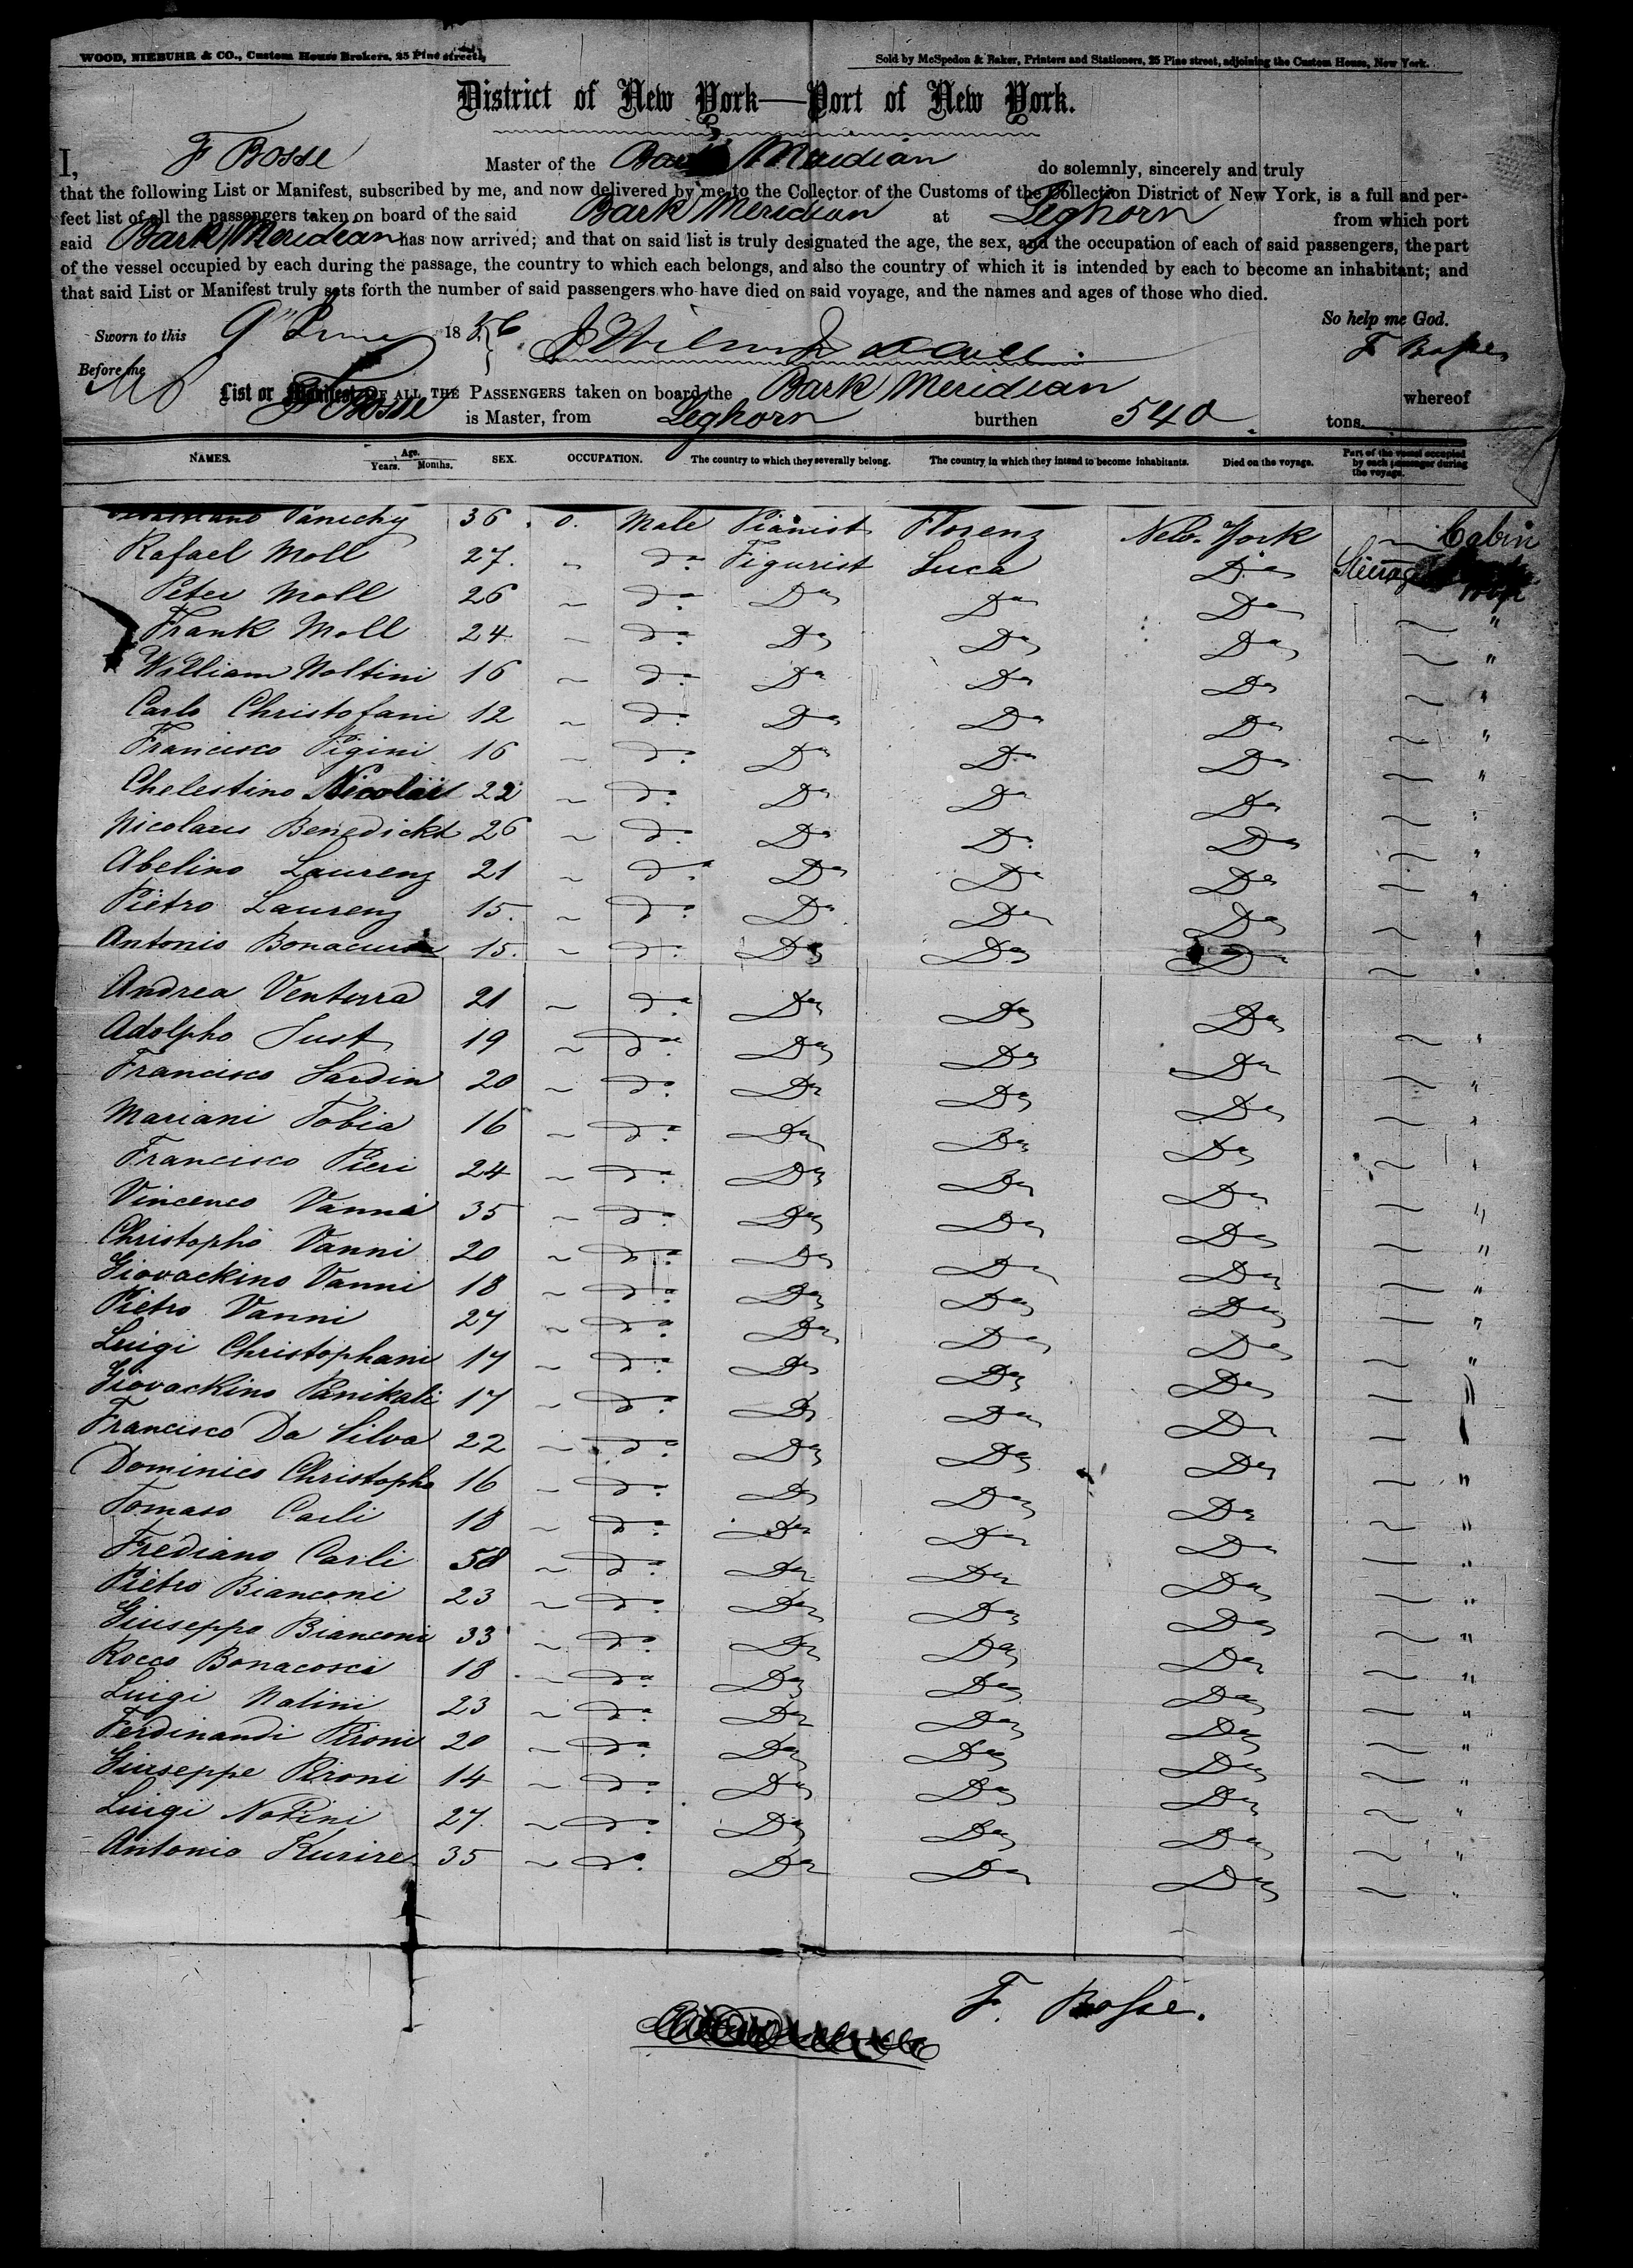 WOOD, NIEBUHR & CO., Custom House Brokers, 25 Pine street,
Sold by McSpedon & Baker, Printers and Stationers, 25 Pine street, adjoining the Custom House, New York.
District of New York—Port of New York.
I, F Bosse Master of the Bark Meridian do solemnly, sincerely and truly
that the following List or Manifest, subscribed by me, and now delivered by me to the Collector of the Customs of the Collection District of New York, is a full and per-
fect list of all the passengers taken on board of the said Bark Meridian at Leghorn from which port
said Bark Meridian has now arrived; and that on said list is truly designated the age, the sex, and the occupation of each of said passengers, the part
of the vessel occupied by each during the passage, the country to which each belongs, and also the country of which it is intended by each to become an inhabitant; and
that said List or Manifest truly sets forth the number of said passengers who have died on said voyage, and the names and ages of those who died.
So help me God.
Sworn to this 9th June 1856 F Bosse
Before me
List or Manifest OF ALL THE PASSENGERS taken on board the Bark Meridian whereof
F Bosse is Master, from Leghorn burthen 540 tons.
NAMES. Age. Years. Months. SEX. OCCUPATION. The country to which they severally belong. The country in which they intend to become inhabitants. Died on the voyage. Part of the vessel occupied by each passenger during the voyage.
Panichy 36 . 0. Male Pianist Florenz New-York — Cabin
Rafael Moll 27. " do Figurist Luca Do Steerage
Peter Moll 26 ~ do Do Do Do ~ "
Frank Moll 24 ~ do Do Do Do ~ "
William Noltini 16 ~ do Do Do Do ~ "
Carlo Christofani 12 ~ do Do Do Do ~ "
Francisco Pigini 16 ~ do Do Do Do ~ "
Chelestino Nicolai 22 ~ do Do Do Do ~ "
Nicolaus Benedickt 26 ~ do Do Do Do ~ "
Abelino Laurenz 21 ~ do Do Do Do ~ "
Pietro Laurenz 15. ~ do Do Do Do ~ "
Antonio 15. ~ do Do Do Do ~ "
Andrea Venturra 21 ~ do Do Do Do ~ "
Adolpho Just 19 ~ do Do Do Do ~ "
Francisco Sardin 20 ~ do Do Do Do ~ "
Mariani Tobia 16 ~ do Do Do Do ~ "
Francisco Pieri 24 ~ do Do Do Do ~ "
Vincenco Vanni 35 ~ do Do Do Do ~ "
Christopho Vanni 20 ~ do Do Do Do ~ "
Giovackino Vanni 18 ~ do Do Do Do ~ "
Pietro Vanni 27 ~ do Do Do Do ~ "
Luigi Christophani 17 ~ do Do Do Do ~ "
Giovackino Panikali 17 ~ do Do Do Do ~ "
Francisco Da Silva 22 ~ do Do Do Do ~ "
Dominico Christopho 16 ~ do Do Do Do ~ "
Tomaso Carli 18 ~ do Do Do Do ~ "
Frediano Carli 58 ~ do Do Do Do ~ "
Pietro Bianconi 23 ~ do Do Do Do ~ "
Giuseppo Bianconi 33 ~ do Do Do Do ~ "
Rocco Bonacosci 18 ~ do Do Do Do ~ "
Luigi Natini 23 ~ do Do Do Do ~ "
Ferdinandi Pironi 20 ~ do Do Do Do ~ "
Giuseppe Pironi 14 ~ do Do Do Do ~ "
Luigi Notini 27. ~ do Do Do Do ~ "
Antonio Kurire 35 ~ do Do Do Do ~ "
F. Bosse.